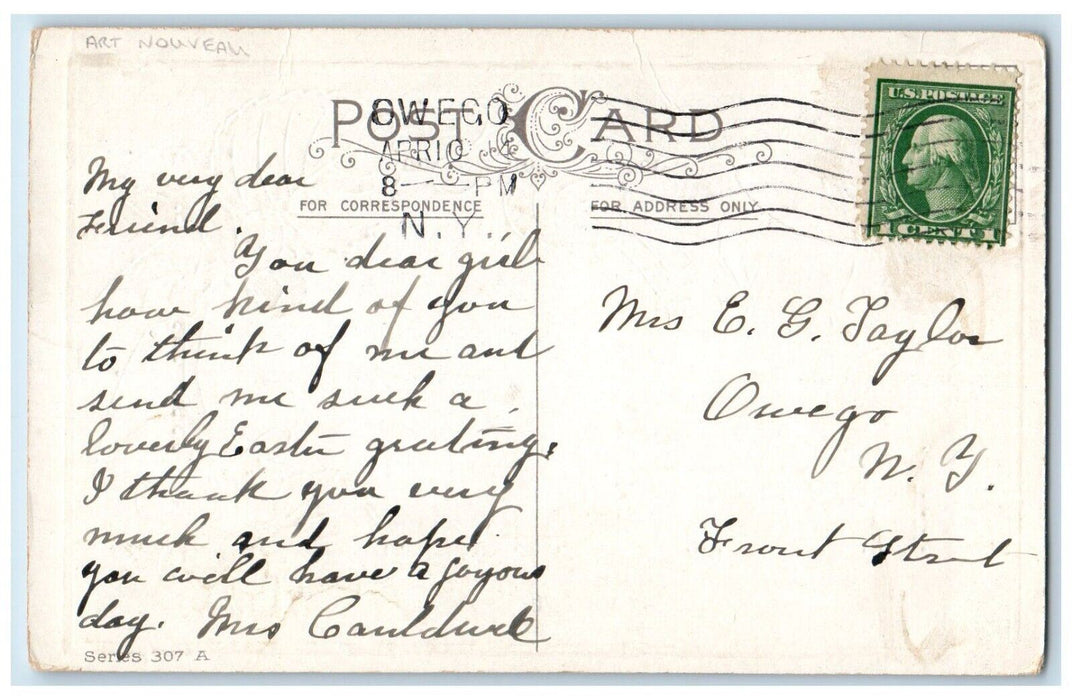 ART NOUVEAU
POST CARD
OWEGO
APR 10
8 — PM
N.Y.
U.S. POSTAGE
1 CENT 1
FOR CORRESPONDENCE
FOR ADDRESS ONLY
My very dear
Friend.
You dear girl
how kind of you
to think of me and
send me such a
loverly Easter greeting.
I thank you very
much and hope
you will have a joyous
day. Mrs Cauldwell
Series 307 A
Mrs E. G. Taylor
Owego
N. Y.
Front Street